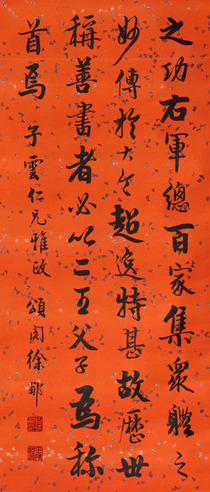 之功右軍總百家集眾體之
妙傳於大令超逸特甚故歷世
稱善書者必以二王父子為稱
首焉
子雲仁兄雅政
頌閣徐郙